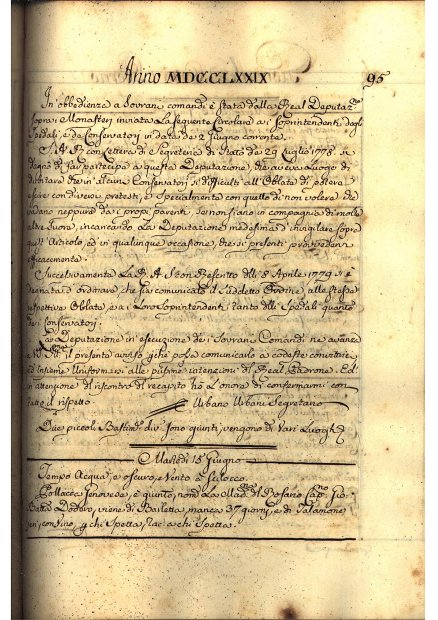 Anno MDCCLXXIX 95
In obbedienza a Sovrani comandi è stata dalla Real Deputaz.ne
sopra i Monasterj inviata la seguente Circolare a i Soprintendenti degli
Spedali, e de Conservatorj in data de 2 Giugno corrente.
S. A. R. con Lettera di Segreteria di Stato de 29 Luglio 1778 si
degnò di far partecipe a questa Deputazione, che aveva luogo di
dubitare che in alcuni Conservatorj si difficulti all' Oblate di potere
escire con diversi pretesti, e specialmente con quello di non volere che
vadano neppure da i propi parenti, se non siano in compagnia di
altre Suore, incaricando la Deputazione medesima d' invigilare sopra
quest' Articolo, ed in qualunque occasione, che si presenti provvedervi
efficacemente.
Successivamente la R. A. S. con Rescritto dell' 8 Aprile 1779 si è
degnata d' ordinare che sia comunicato l' addetto Ordine alle stesse
respettive Oblate, e a i Loro Soprintendenti tanto dlli Spedali quanto
dei Conservatorj.
La Deputazione in esecuzione dei Sovrani Comandi ne avanza
a il presente avviso, p che possa comunicarlo a codeste
ed insieme uniformarsi alle intenzioni del Real Padrone. Ed
in attenzione del riscontro del recapito ho l' onore di confermarmi con
tutto il rispetto.
Urbano Urbani Segretario
Due piccoli Bastim.ti div. sono giunti, vengono di Varj Luoghi
Martedi 15 Giugno
Tempo Acqua, e oscuro, e Vento a Scilocco.
Pollacca Genovese, è giunto, nom. La Mad.na del Rosario Cap.no Gio.
Batta Dodero, viene di Barletta, manca 37 giorni, e di Talamone
con Vino, p chi spetta, rac. a chi spetta.